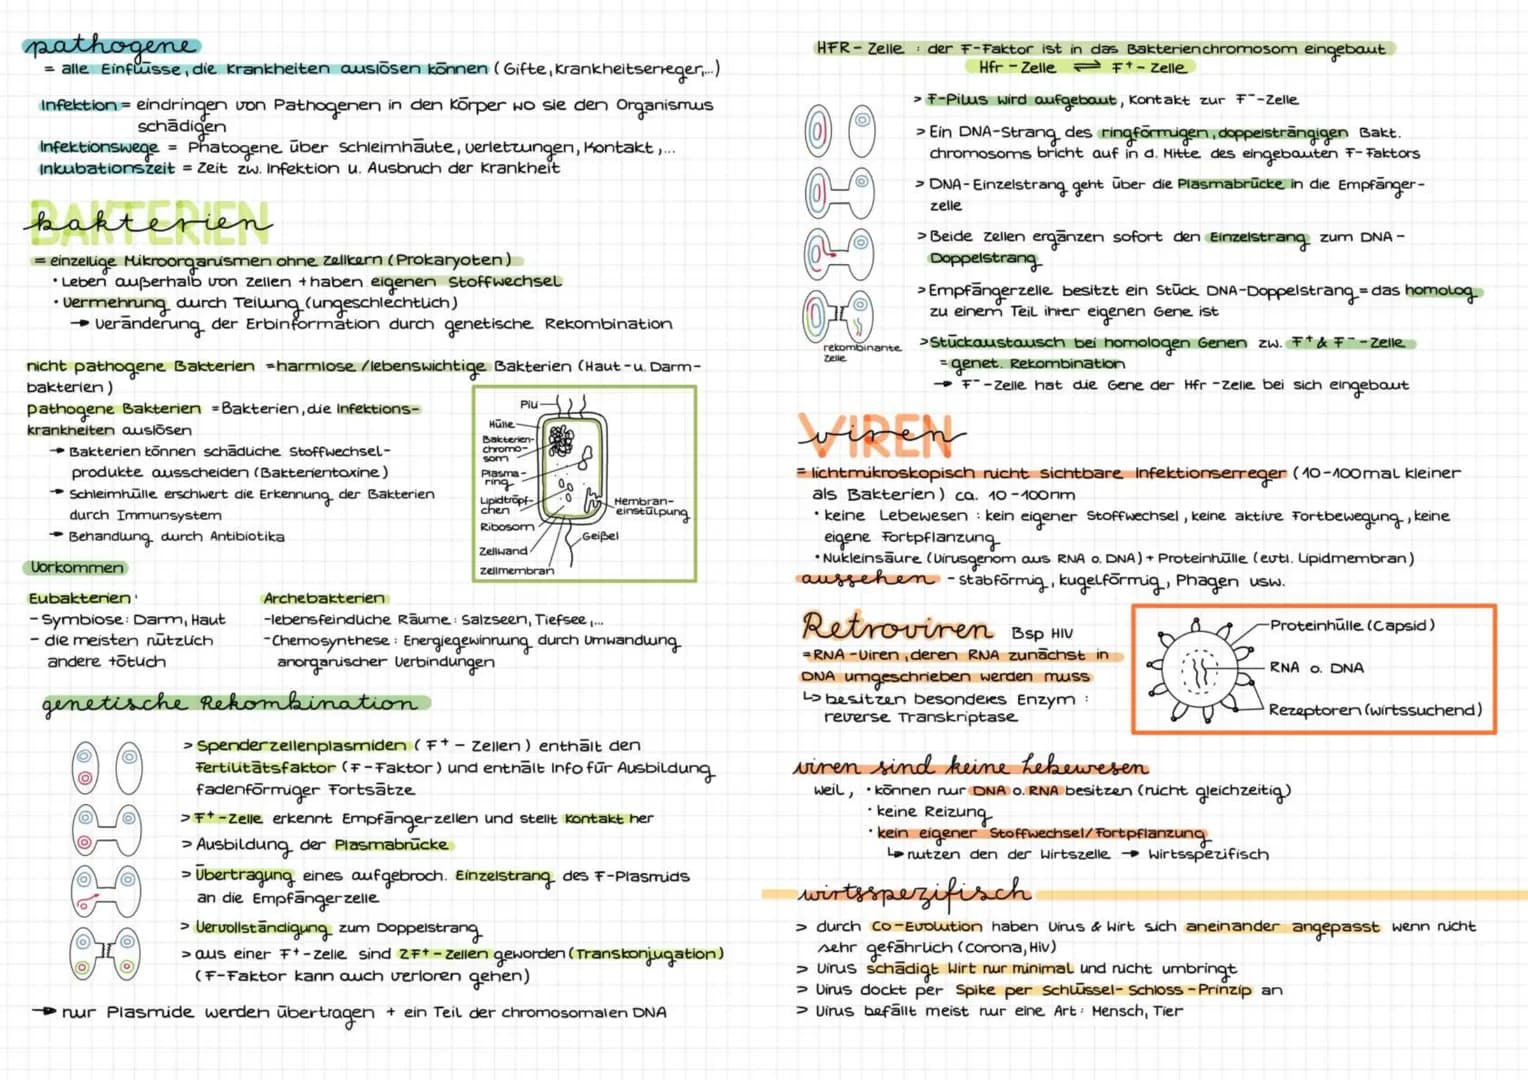 pathogene
= alle Einflüsse, die Krankheiten auslösen können (Gifte, Krankheitserreger,...)
Infektion = eindringen von Pathogenen in den Körper wo sie den Organismus
schädigen
Infektionswege = Phatogene über Schleimhäute, Verletzungen, Kontakt,...
Inkubationszeit = Zeit zw. Infektion u. Ausbruch der Krankheit
BAKTERIEN
bakterien
= einzellige Mikroorganismen ohne Zellkern (Prokaryoten)
• Leben außerhalb von Zellen + haben eigenen Stoffwechsel
• Vermehrung durch Teilung (ungeschlechtlich)
→ Veränderung der Erbinformation durch genetische Rekombination
nicht pathogene Bakterien = harmlose / lebenswichtige Bakterien (Haut- u. Darm-
bakterien)
pathogene Bakterien = Bakterien, die Infektions-
krankheiten auslösen
→ Bakterien können schädliche Stoffwechsel-
produkte ausscheiden (Bakterientoxine)
→ Schleimhülle erschwert die Erkennung der Bakterien
durch Immunsystem
→ Behandlung durch Antibiotika
Pili
Hülle
Bakterien-
chromo-
som
Plasma-
ring
Lipidtröpf-
chen
Ribosom
Zellwand
Zellmembran
Membran-
einstülpung
Geißel
Vorkommen
Eubakterien:
- Symbiose: Darm, Haut
- die meisten nützlich
andere tötlich
Archebakterien
- lebensfeindliche Räume: Salzseen, Tiefsee,...
- Chemosynthese: Energiegewinnung durch Umwandlung
anorganischer Verbindungen
genetische Rekombination
> Spenderzellenplasmiden (F⁺ - Zellen) enthält den
Fertilitätsfaktor (F-Faktor) und enthält Info für Ausbildung
fadenförmiger Fortsätze
> F⁺-Zelle erkennt Empfängerzellen und stellt Kontakt her
> Ausbildung der Plasmabrücke
> Übertragung eines aufgebroch. Einzelstrang des F-Plasmids
an die Empfängerzelle
> Vervollständigung zum Doppelstrang
> aus einer F⁺-Zelle sind 2F⁺-Zellen geworden (Transkonjugation)
(F-Faktor kann auch verloren gehen)
→ nur Plasmide werden übertragen + ein Teil der chromosomalen DNA
HFR - Zelle : der F-Faktor ist in das Bakterienchromosom eingebaut
Hfr - Zelle ⇌ F⁺ - Zelle
> F-Pilus wird aufgebaut, Kontakt zur F⁻-Zelle
> Ein DNA-Strang des ringförmigen, doppelsträngigen Bakt.
chromosoms bricht auf in d. Mitte des eingebauten F-Faktors
> DNA-Einzelstrang geht über die Plasmabrücke in die Empfänger-
zelle
> Beide Zellen ergänzen sofort den Einzelstrang zum DNA -
Doppelstrang
> Empfängerzelle besitzt ein Stück DNA-Doppelstrang = das homolog
zu einem Teil ihrer eigenen Gene ist
rekombinante
Zelle
> Stückaustausch bei homologen Genen zw. F⁺ & F⁻ - Zelle
= genet. Rekombination
→ F⁻-Zelle hat die Gene der Hfr-Zelle bei sich eingebaut
VIREN
viren
= lichtmikroskopisch nicht sichtbare Infektionserreger (10-100 mal kleiner
als Bakterien) ca. 10-100nm
• keine Lebewesen : kein eigener Stoffwechsel, keine aktive Fortbewegung, keine
eigene Fortpflanzung
• Nukleinsäure (Virusgenom aus RNA o. DNA) + Proteinhülle (evtl. Lipidmembran)
aussehen - stabförmig, kugelförmig, Phagen usw.
Retroviren Bsp HIV
= RNA-Viren, deren RNA zunächst in
DNA umgeschrieben werden muss
↳ besitzen besonderes Enzym :
reverse Transkriptase
Proteinhülle (Capsid)
RNA o. DNA
Rezeptoren (wirtssuchend)
viren sind keine Lebewesen
weil, • können nur DNA o. RNA besitzen (nicht gleichzeitig)
• keine Reizung
• kein eigener Stoffwechsel/Fortpflanzung
↳ nutzen den der Wirtszelle → wirtsspezifisch
wirtsspezifisch
> durch Co-Evolution haben Virus & Wirt sich aneinander angepasst wenn nicht
sehr gefährlich (Corona, Hiv)
> Virus schädigt Wirt nur minimal und nicht umbringt
> Virus dockt per Spike per Schlüssel-Schloss-Prinzip an
> Virus befällt meist nur eine Art: Mensch, Tier